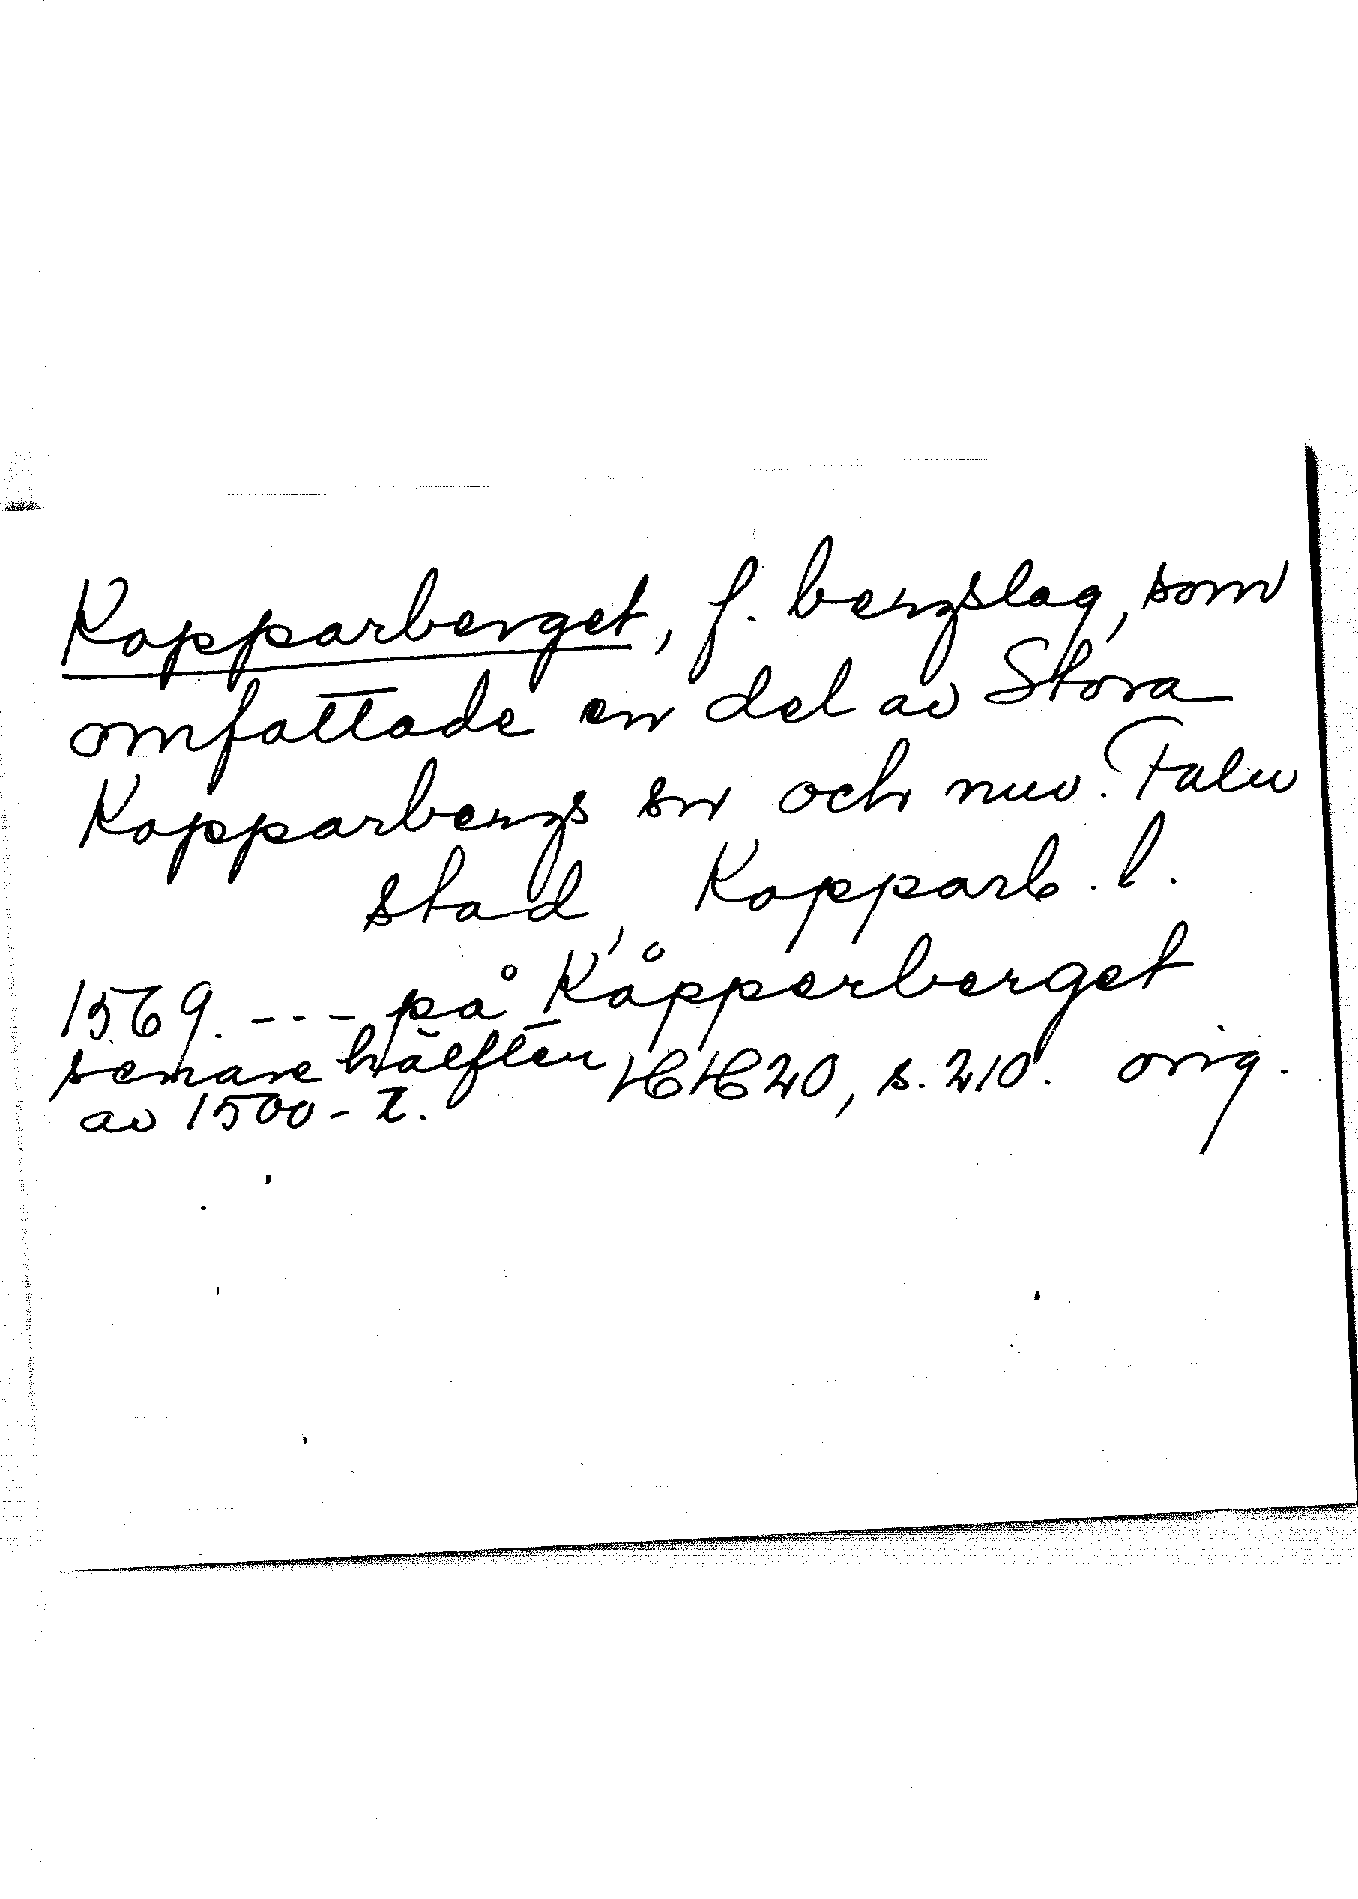 Kopparberget, f. bergslag, som
omfattade en del av Stora
Kopparbergs sn och nuv. Falu
stad, Kopparb. l.
1569. --- på Kåpperberget
senare hälften HH 20, s. 210. orig.
av 1500-t.